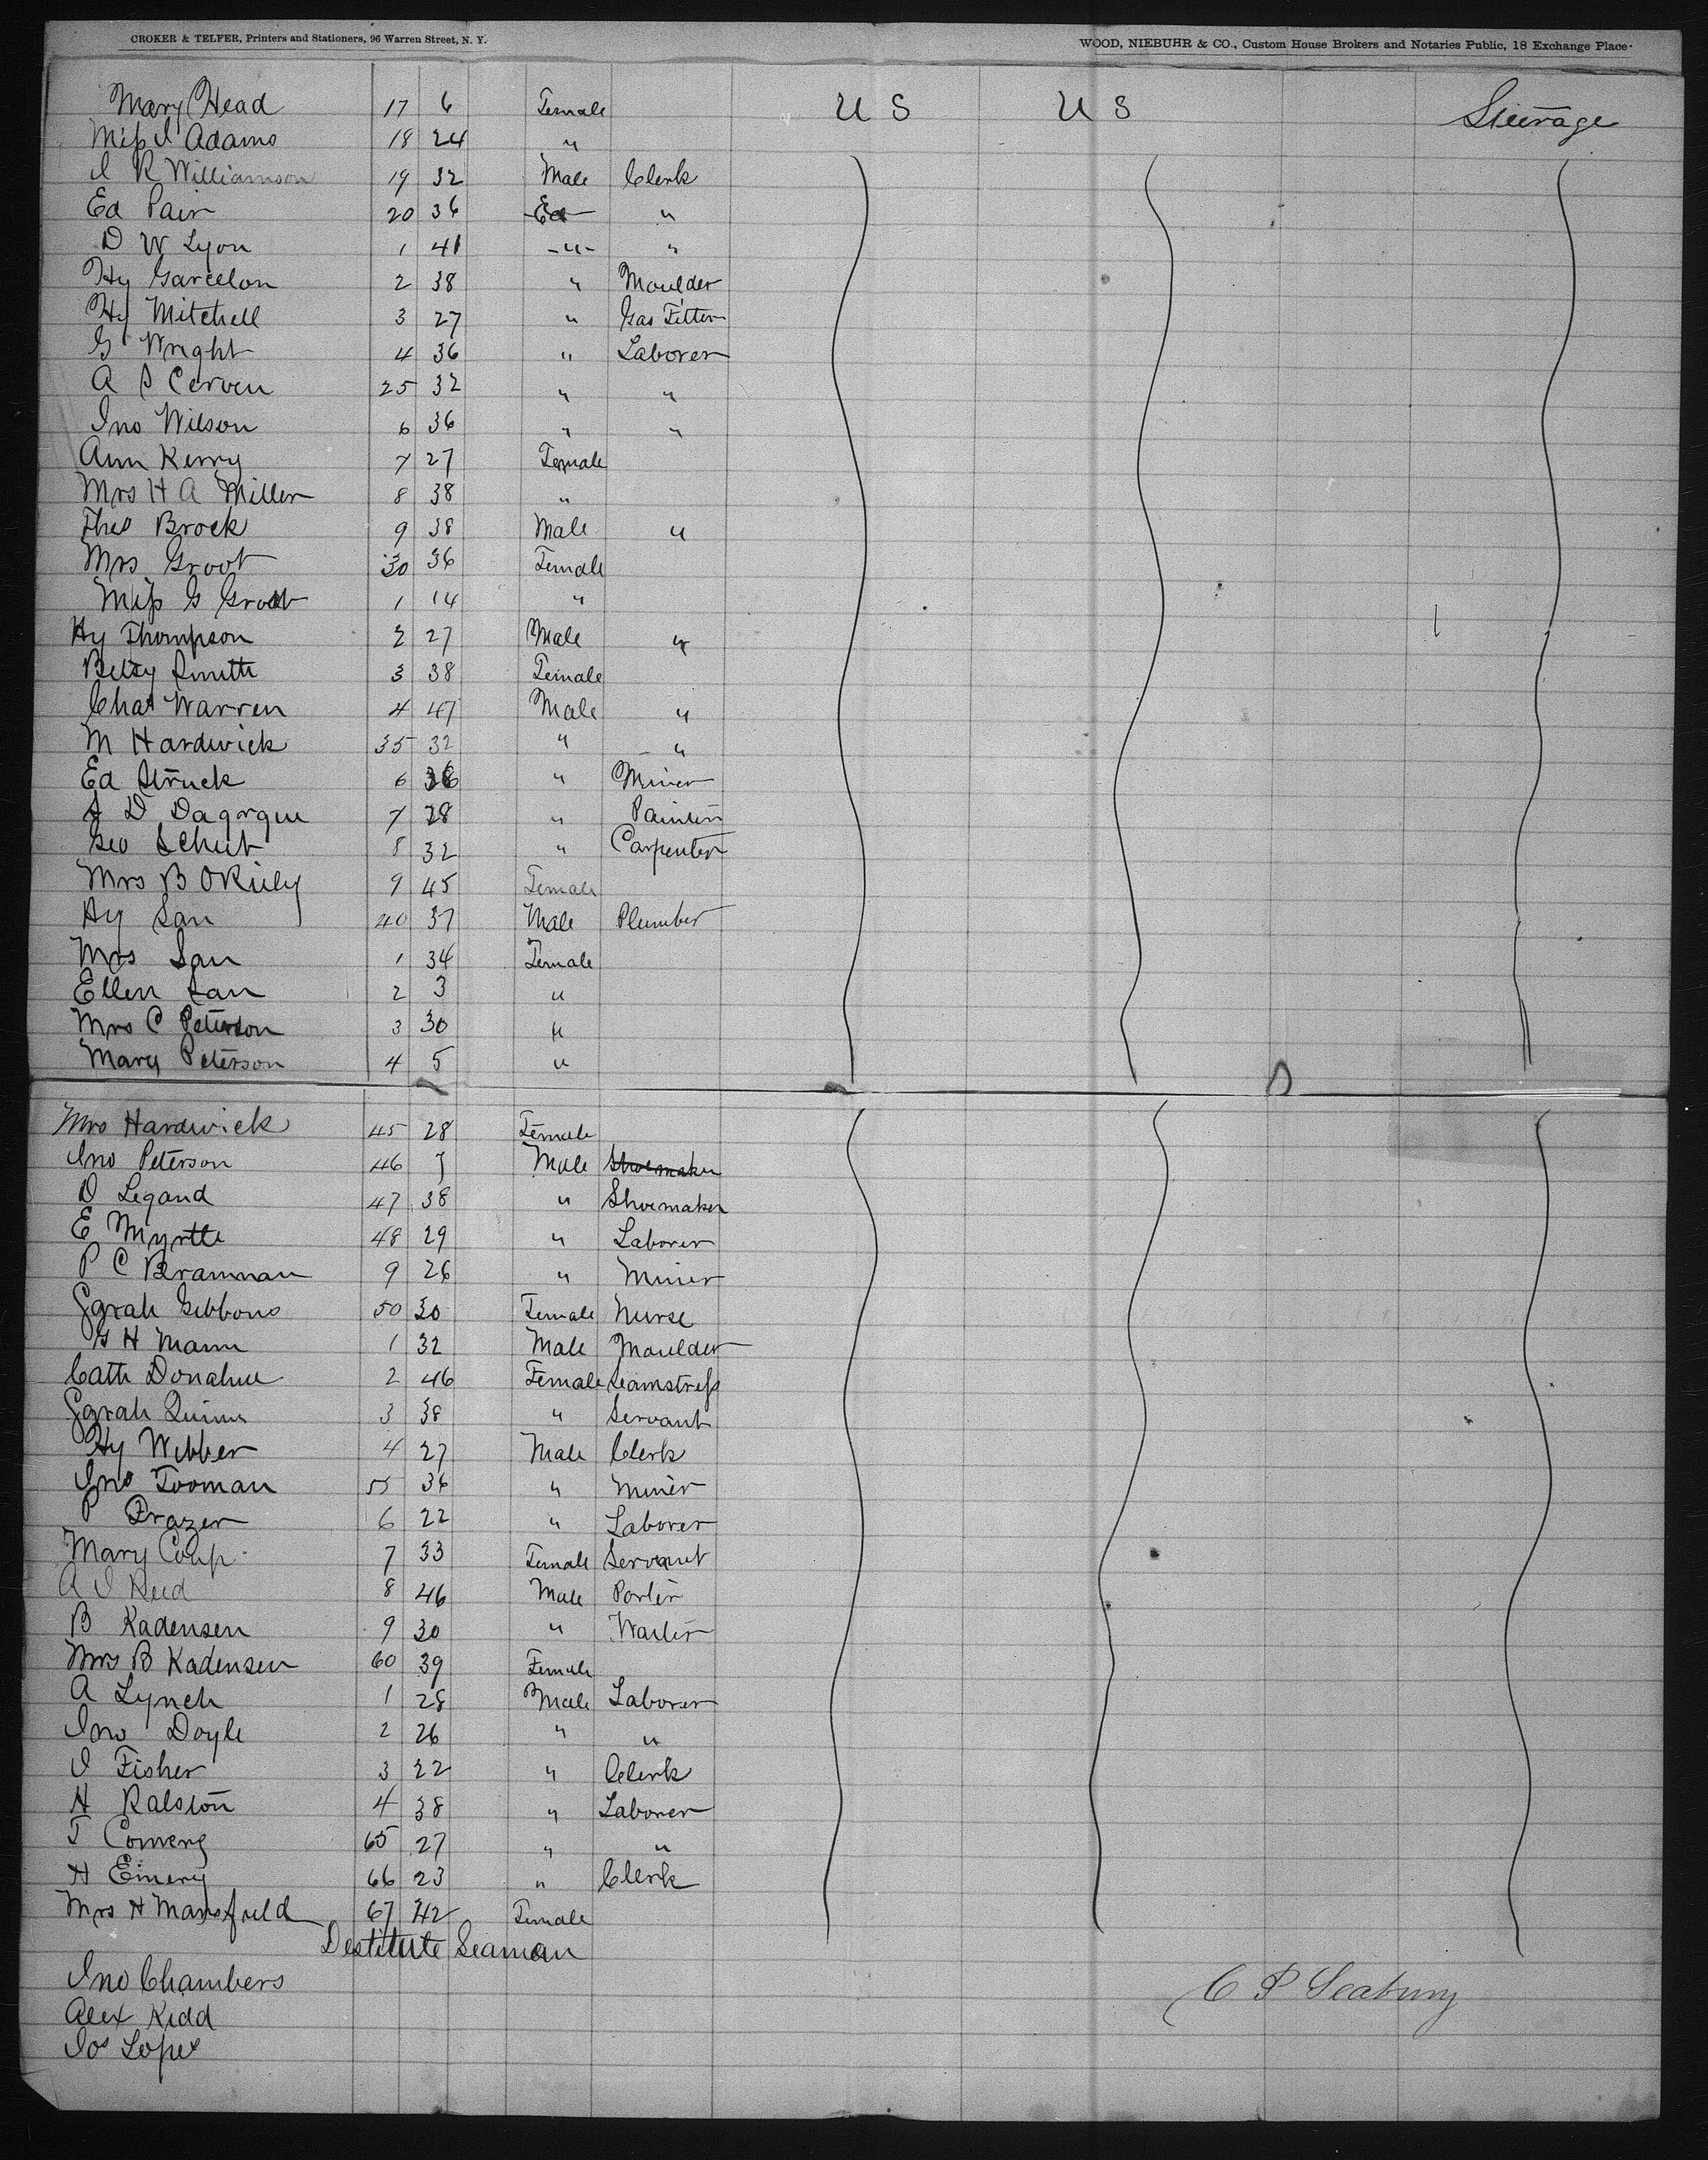 CROKER & TELFER, Printers and Stationers, 96 Warren Street, N. Y.
WOOD, NIEBUHR & CO., Custom House Brokers and Notaries Public, 18 Exchange Place.
Mary Head 17 6 Female U S U S Steerage
Miss I Adams 18 24 "
I R Williamson 19 32 Male Clerk
Ed Pair 20 36 Ed "
D W Lyon 1 41 -"- "
Hy Garcelon 2 38 " Moulder
Hy Mitchell 3 27 " Gas Fitter
G Wright 4 36 " Laborer
A S Cerven 25 32 " "
Jno Wilson 6 36 " "
Ann Kerry 7 27 Female
Mrs H A Miller 8 38 "
Theo Brock 9 38 Male "
Mrs Groot 30 36 Female
Miss G Groot 1 14 "
Hy Thompson 2 27 Male "
Betsy Smith 3 38 Female
Chas Warren 4 47 Male "
M Hardwick 35 32 " "
Ed Struck 6 36 " Miner
J D Dagorgue 7 28 " Painter
Geo Schut 8 32 " Carpenter
Mrs B ORiely 9 45 Female
Hy San 40 37 Male Plumber
Mrs San 1 34 Female
Ellen San 2 3 "
Mrs C Peterson 3 30 "
Mary Peterson 4 5 "
Mrs Hardwick 45 28 Female
Jno Peterson 46 7 Male Shoemaker
D Legand 47 38 " Shoemaker
E Myrtle 48 29 " Laborer
P C Bramman 9 26 " Miner
Sarah Gibbons 50 30 Female Nurse
G H Mann 1 32 Male Moulder
Cath Donahue 2 46 Female Seamstress
Sarah Quinn 3 38 " Servant
Hy Webber 4 27 Male Clerk
Jno Tooman 55 36 " Miner
P Frazer 6 22 " Laborer
Mary Coup 7 33 Female Servant
A J Reed 8 46 Male Porter
B Kadensen 9 30 " Waiter
Mrs B Kadensen 60 39 Female
A Lynch 1 28 Male Laborer
Jno Doyle 2 26 " "
I Fisher 3 22 " Clerk
H Ralston 4 38 " Laborer
T Comerg 65 27 " "
H Emery 66 23 " Clerk
Mrs H Mansfield 67 42 Female
Destitute Seaman
Jno Chambers
C P Seabury
Alex Kidd
Jos Lopez